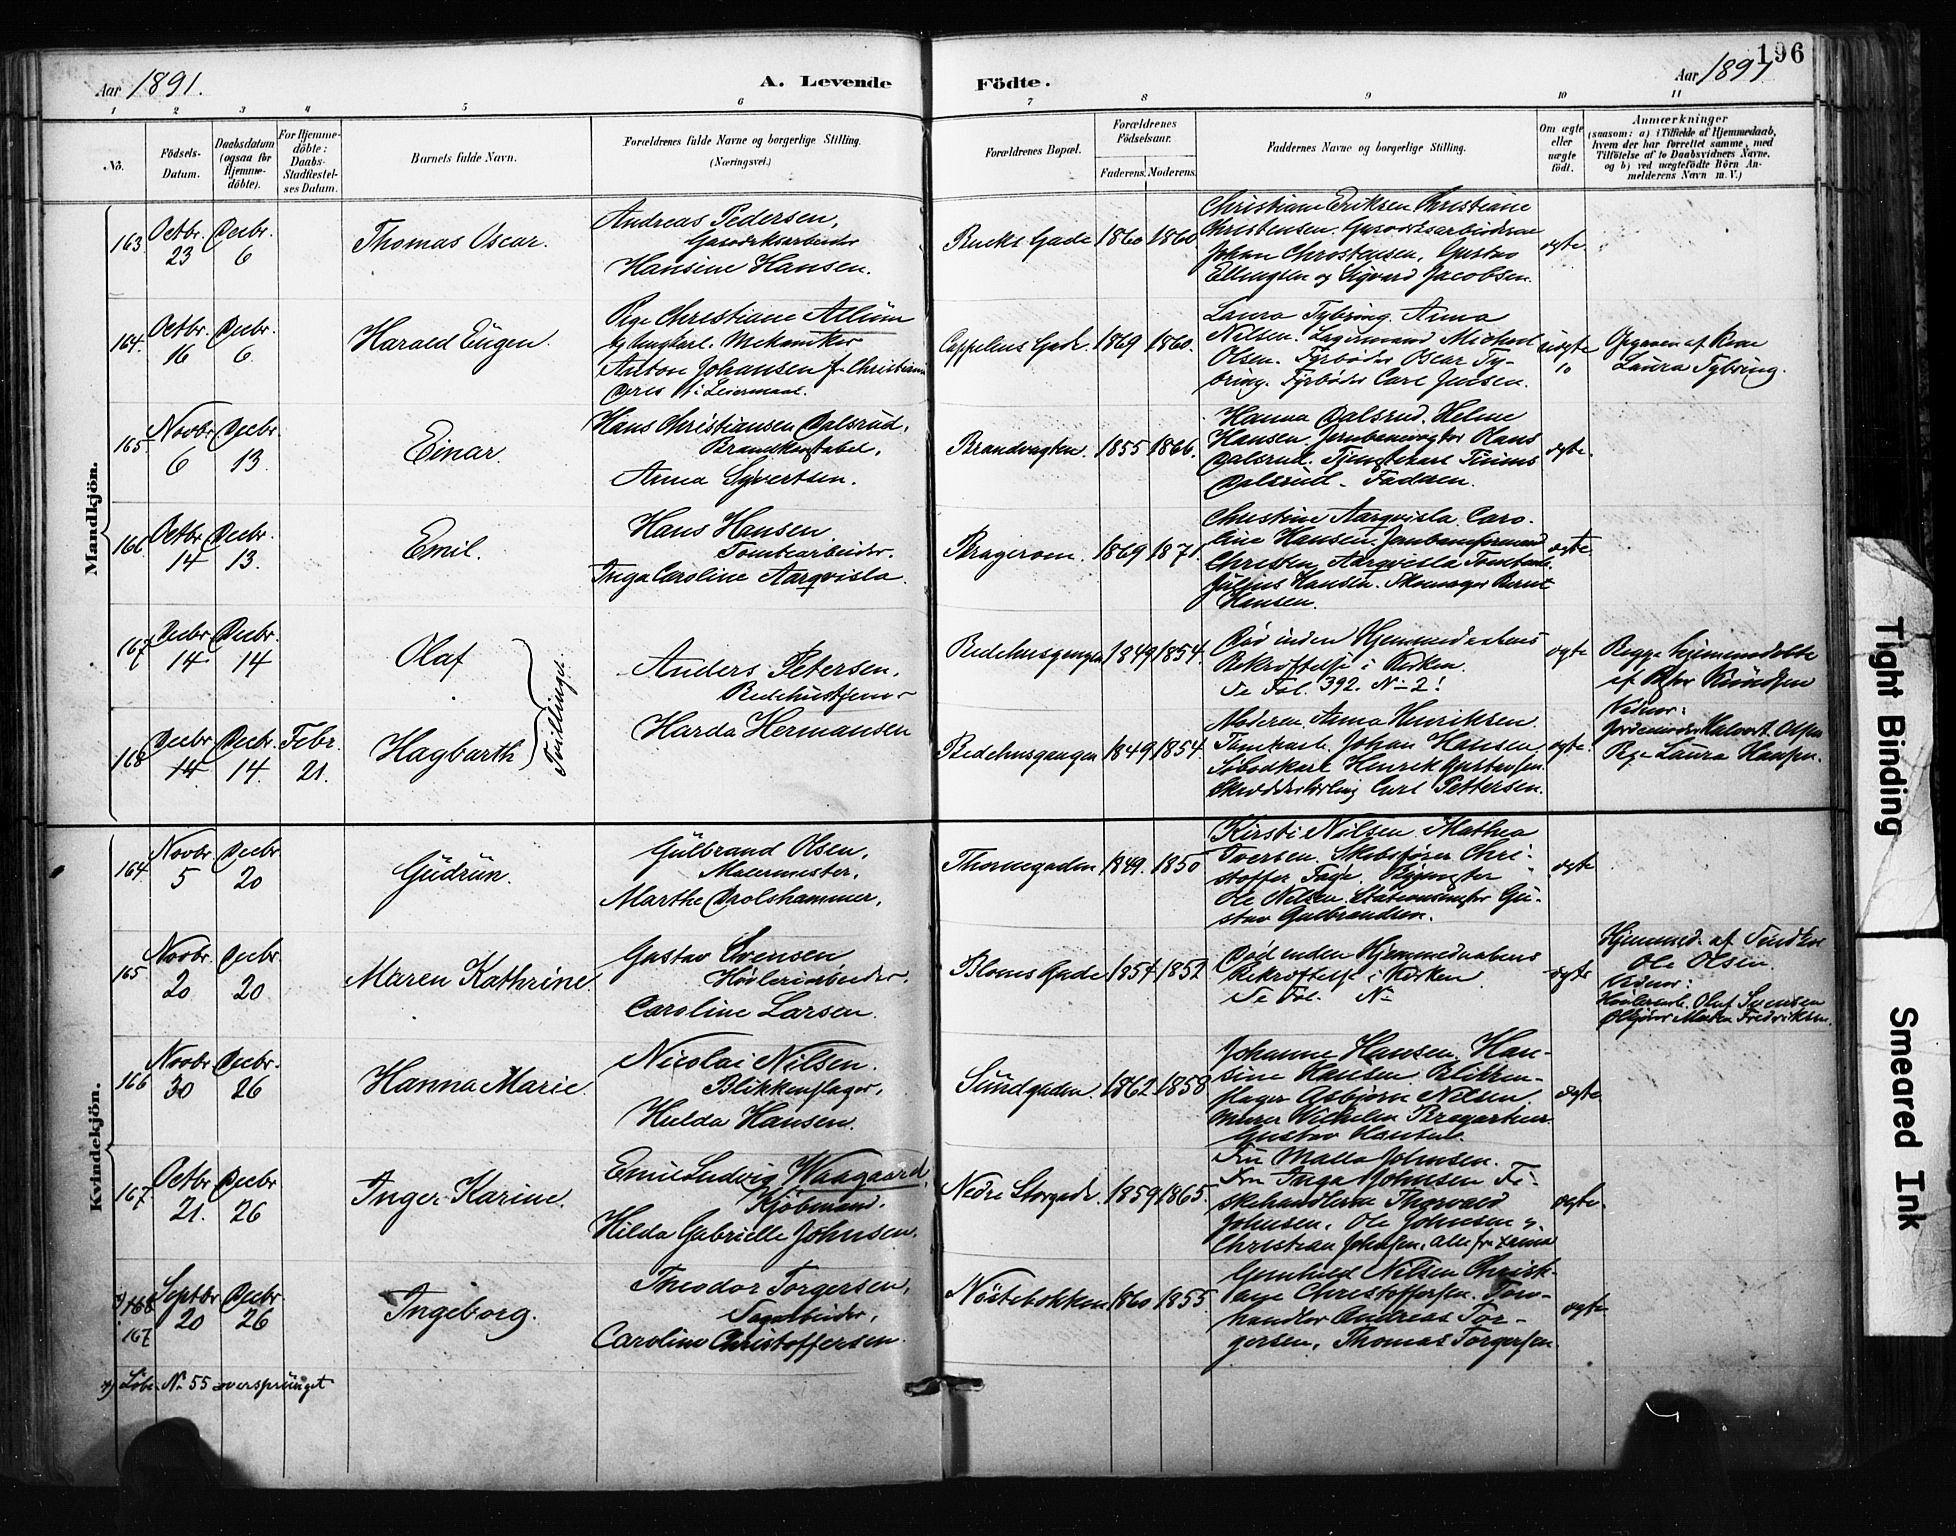 196
Aar 1891.
A. Levende
Födte.
Aar 1891
1 2 3 4 5 6 7 8 9 10 11
No.
Födsels-
Datum.
Daabsdatum
(ogsaa for
Hjemme-
döbte).
For Hjemme-
döbte:
Daabs-
Stadfæstel-
ses Datum.
Barnets fulde Navn.
Forældrenes fulde Navne og borgerlige Stilling.
(Næringsvei.)
Forældrenes Bopæl.
Forældrenes
Födselsaar.
Faderens. Moderens.
Faddernes Navne og borgerlige Stilling.
Om ægte
eller
uægte
födt.
Anmærkninger
(saasom: a) i Tilfælde af Hjemmedaab,
hvem der har forrettet samme, med
Tilföielse af to Daabsvidners Navne,
og b) ved uægtefödte Börn An-
melderens Navn m. V.)
Mandkjön.
163 Octbr. 23 Decbr. 6
Thomas Oscar.
Andreas Pedersen,
Gasværksarbeider
Hansine Hansen.
Bucks Gade 1860 1860
Christiane Eriksen Christiane
Christensen.
Johan Christensen, Gustav
Ellingsen og Sigvard Jacobsen.
ægte
164. Octbr. 16 Decbr. 6.
Harald Eugen.
Pige Christiane Allum
og Ungkarl. Mekaniker
Anton Johansen fr Christiania
Deres 1ste Leiermaal.
Cappelens Gade. 1869 1860.
Laura Tybring. Anna
Nilsen. Lagermand Michael
Olsen. Fyrbøder Oscar Ty-
bring. Fyrbøder Carl Jensen.
uægte
Opgiven af Kone
Laura Tybring.
165. Novbr 6 Decbr 13.
Einar.
Hans Christiansen Dalsrud,
Brandkonstabel,
Anna Syvertsen.
Brandvagten. 1855 1866.
Hanna Dalsrud. Helene
Hansen. Jernbanevagter Hans
Dalsrud. Tjenestekarl
Dalsrud. Faderen.
ægte.
166 Octbr. 14 Decbr. 13.
Emil.
Hans Hansen
Tomtearbeider.
Inga Caroline Aarqvisla.
Bragerøen. 1869 1871
Christine Aarqvisla. Caro-
line Hansen. Jernbaneformand
Christen Aarqvisla
Julius Hansen. Skomager Bernt
Hansen.
ægte
167 Decbr 14 Decbr. 14
Olaf
Tvillinger.
Anders Petersen,
Bedehustjener
Harda Hermansen
Bedehusgangen 1849 1854.
Død inden Hjemmedaabens
Bekræftelse i Kirken.
Se Fol. 392. No 2!
ægte
Begge hjemmedøbte
af
Vidner:
Jordemoder Halvor. Olsen
Pige Laura Hansen.
168 Decbr 14 Decbr. 14. Febr. 21.
Hagbarth
Bedehusgangen 1849 1854.
Moderen. Anna Henriksen
Johan Hansen.
Henrik Gustavsen.
Carl Pettersen.
ægte
Kvindekjön.
164 Novbr. 5 Decbr 20
Gudrun.
Gulbrand Olsen,
Malermester,
Marthe Drolshammer,
Thornegaden 1849. 1850
Kirsti Nilsen. Mathea
Iversen. Skibsfører Chri-
stoffer
Ole Nilsen. Gu-
stav Gulbrandsen.
ægte
165 Novbr. 20 Decbr. 20
Maren Kathrine.
Gustav Svensen
Høvleriarbeider.
Caroline Larsen.
Bloms Gade 1854 1852
Død inden Hjemmedaabens
Bekræftelse i Kirken
Se Fol. No
ægte
Hjemmed. af
Ole Olsen.
Vidner:
Olaf Svensen
Maren Fredriksen.
166 Novbr. 30 Decbr. 26
Hanna Marie.
Nicolai Nilsen.
Blikkenslager,
Hulda Hansen.
Sundgaden. 1862 1858
Johanne Hansen. Han-
sine Hansen. Blikken-
slager Asbjørn Nilsen.
Murer Wilhelm
Gustav
ægte.
167 Octbr 21. Decbr 26
Inger Karine.
Emil Ludvig Waagaard,
Kjøbmand.
Hilda Gabrielle Johnsen.
Nedre Storgade. 1859 1865.
Fru Malla Johnsen.
Fru Inga Johnsen Fi-
skehandlerne Thorvald
Johnsen, Ole Johnsen &
Christian Johnsen, alle fra
ægte.
*) 168 167 Septbr. 20 Decbr 26
Ingeborg.
Theodor Torgersen,
Sagarbeider,
Caroline Christoffersen.
Nøstebakken 1860 1855.
Gunhild Nilsen Christ-
iane Christoffersen.
handler Andreas Tor-
gersen, Thomas Torgersen.
ægte
*) Løbe No 55 oversprunget
Tight Binding
Smeared Ink